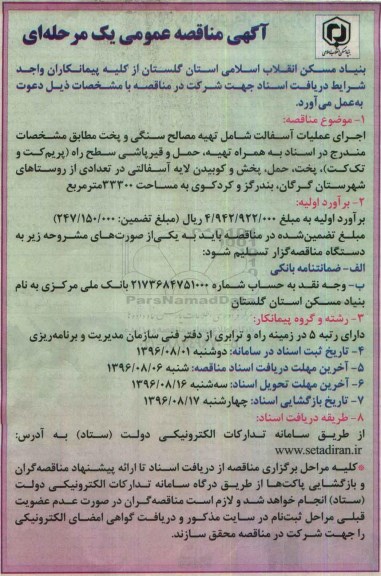 آگهی مناقصه عمومی یک مرحله‌ای
بنیاد مسکن انقلاب اسلامی استان گلستان از کلیه پیمانکاران واجد
شرایط دریافت اسناد جهت شرکت در مناقصه با مشخصات ذیل دعوت
به‌عمل می‌آورد.
۱- موضوع مناقصه:
اجرای عملیات آسفالت شامل تهیه مصالح سنگی و پخت مطابق مشخصات
مندرج در اسناد به همراه تهیه، حمل و قیرپاشی سطح راه (پریم‌کت و
تک‌کت)، پخت، حمل، پخش و کوبیدن لایه آسفالتی در تعدادی از روستاهای
شهرستان گرگان، بندرگز و کردکوی به مساحت ۳۳۳۰۰مترمربع
۲- برآورد اولیه:
برآورد اولیه به مبلغ ۴/۹۴۲/۹۲۲/۰۰۰ ریال (مبلغ تضمین: ۲۴۷/۱۵۰/۰۰۰)
مبلغ تضمین‌شده در مناقصه باید به یکی‌از صورت‌های مشروحه زیر به
دستگاه مناقصه‌گزار تسلیم شود:
الف- ضمانتنامه بانکی
ب- وجه نقد به حساب شماره ۲۱۷۳۶۸۴۷۵۱۰۰۰ بانک ملی مرکزی به نام
بنیاد مسکن استان گلستان
ParsNamadData
۳- رشته و گروه پیمانکار:
دارای رتبه ۵ در زمینه راه و ترابری از دفتر فنی سازمان مدیریت و برنامه‌ریزی
۴- تاریخ ثبت اسناد در سامانه: دوشنبه ۱۳۹۶/۰۸/۰۱
۵- آخرین مهلت دریافت اسناد مناقصه: شنبه ۱۳۹۶/۰۸/۰۶
۶- آخرین مهلت تحویل اسناد: سه‌شنبه ۱۳۹۶/۰۸/۱۶
۷- تاریخ بازگشایی اسناد: چهارشنبه ۱۳۹۶/۰۸/۱۷
۸- طریقه دریافت اسناد:
از طریق سامانه تدارکات الکترونیکی دولت (ستاد) به آدرس:
www.setadiran.ir
*کلیه مراحل برگزاری مناقصه از دریافت اسناد تا ارائه پیشنهاد مناقصه‌گران
و بازگشایی پاکت‌ها از طریق درگاه سامانه تدارکات الکترونیکی دولت
(ستاد) انجام خواهد شد و لازم است مناقصه‌گران در صورت عدم عضویت
قبلی مراحل ثبت‌نام در سایت مذکور و دریافت گواهی امضای الکترونیکی
را جهت شرکت در مناقصه محقق سازند.